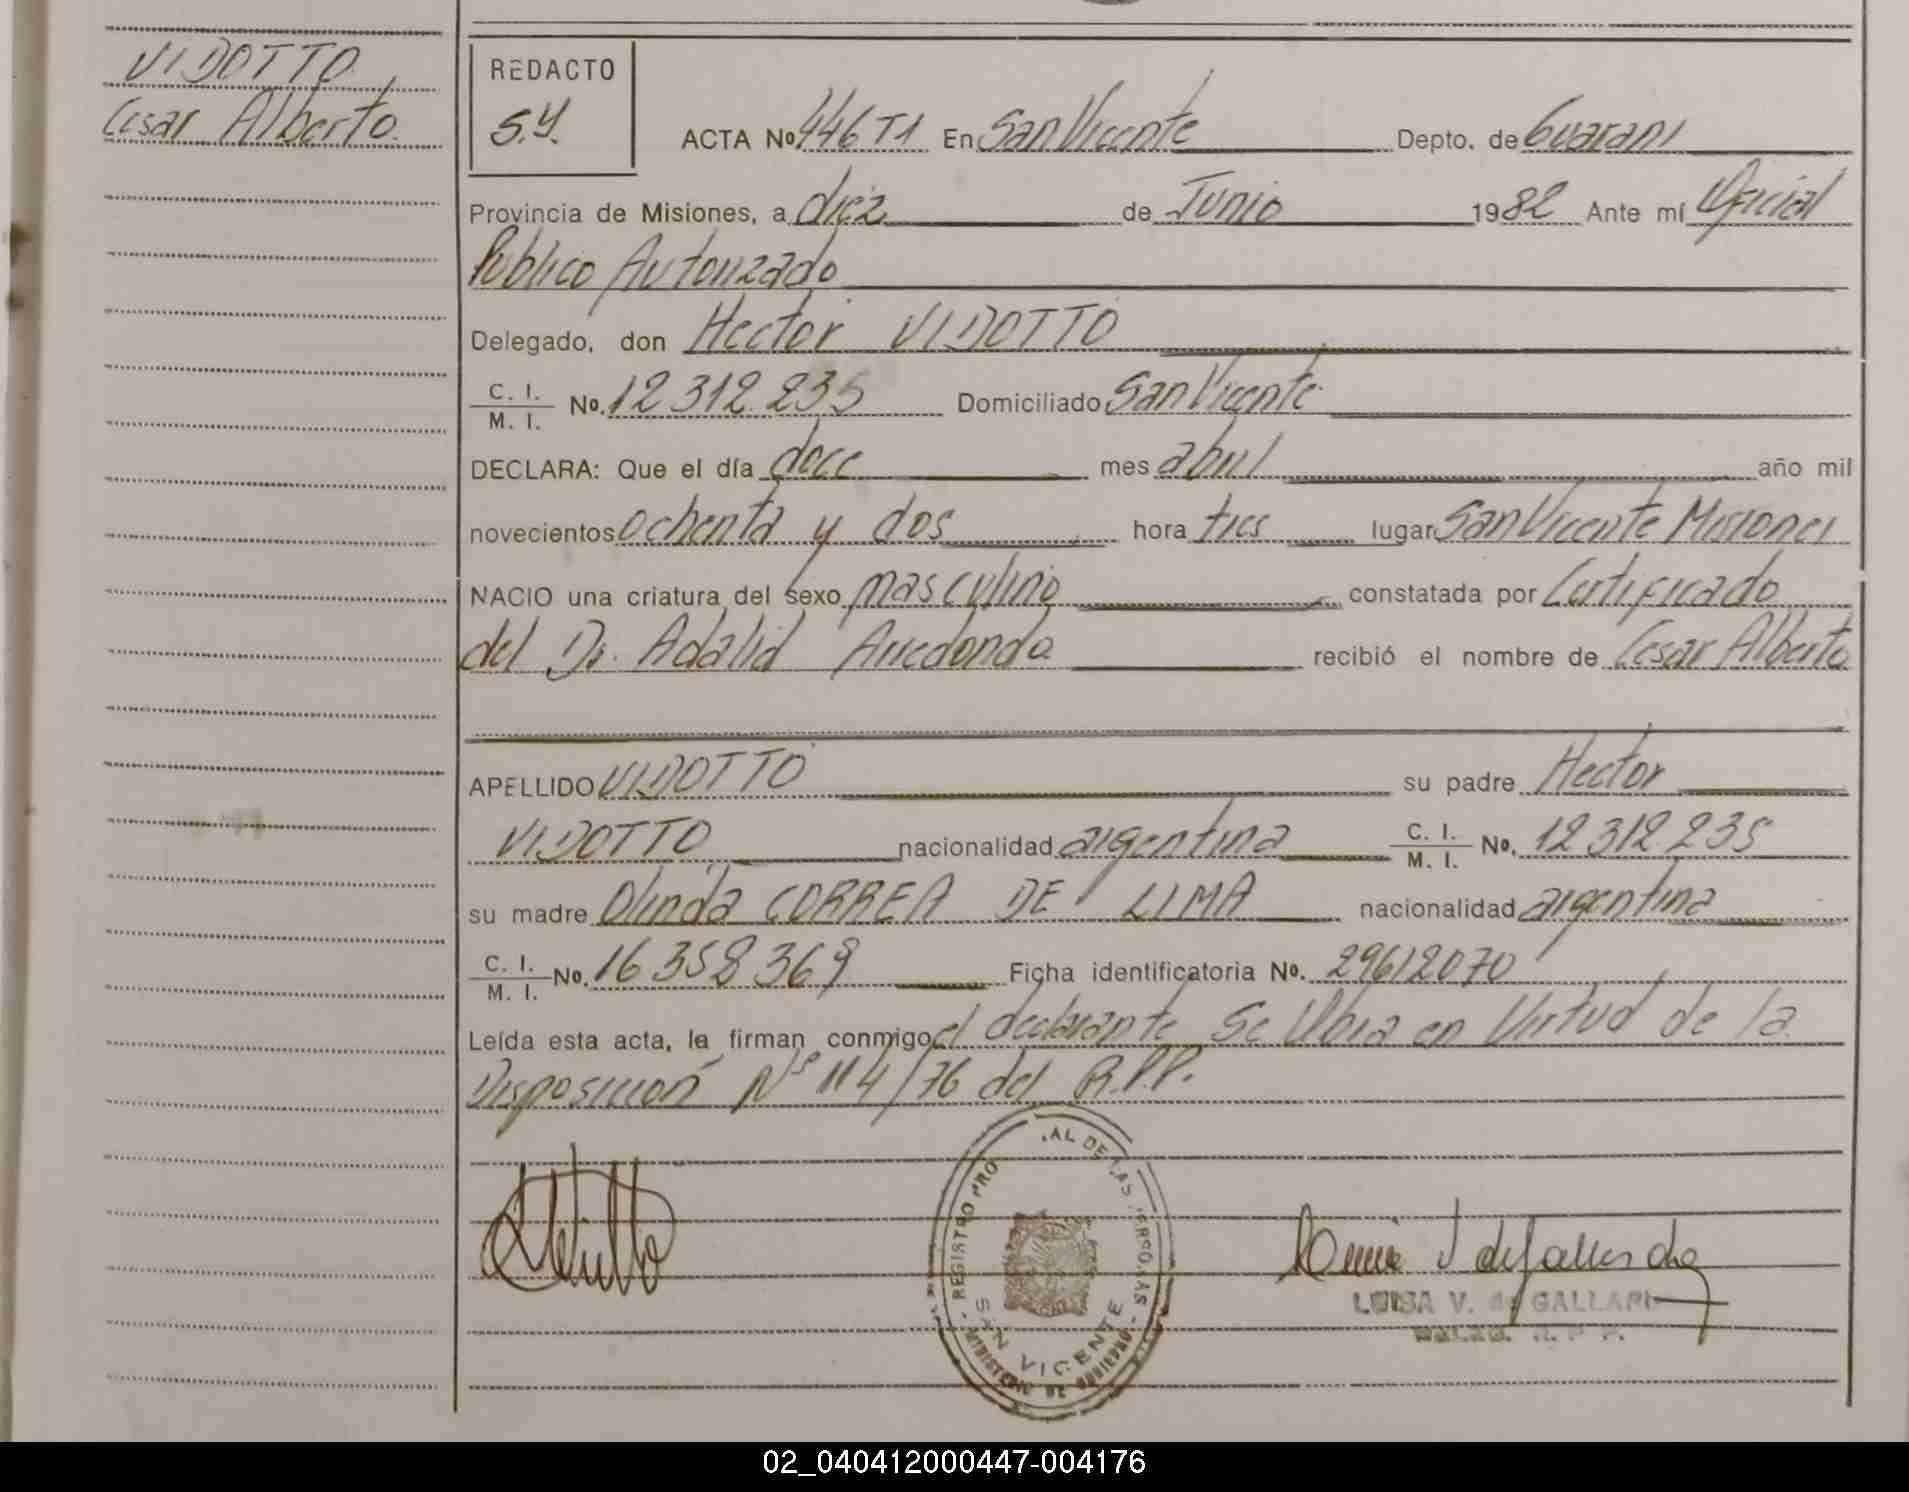 VIDOTTO
Cesar Alberto.
REDACTO
S.Y.
ACTA No 446 T1 En San Vicente Depto. de Guarani
Provincia de Misiones, a diez de Junio 1982 Ante mí Oficial
Publico Autorizado
Delegado, don Hector VIDOTTO
C. I.
M. I. No. 12 312.235 Domiciliado San Vicente
DECLARA: Que el día doce mes abril año mil
novecientos ochenta y dos hora tres lugar San Vicente Misiones
NACIO una criatura del sexo masculino constatada por Certificado
del Dr. Adalid Arredondo recibió el nombre de Cesar Alberto
APELLIDO VIDOTTO su padre Hector
VIDOTTO nacionalidad argentina C. I.
M. I. No. 12 312 235
su madre Olinda CORREA DE LIMA nacionalidad argentina
C. I.
M. I. No. 16 358 369 Ficha identificatoria No. 29612070
Leída esta acta, la firman conmigo el declarante Se labra en Virtud de la
Disposición Nº 114/76 del R.P.P.
REGISTRO PRO AL DE LAS PERSONAS
SAN VICENTE
MINISTERIO DE GOBIERNO
LUISA V. de GALLAR
02_040412000447-004176